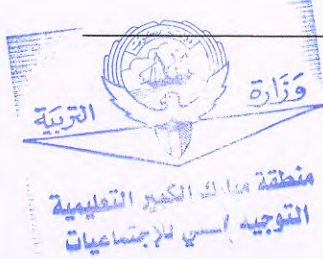 وَزَارة
التربيَة
منطقة مبارك الكبير التعليمية
التوجيه الفني للإجتماعيات